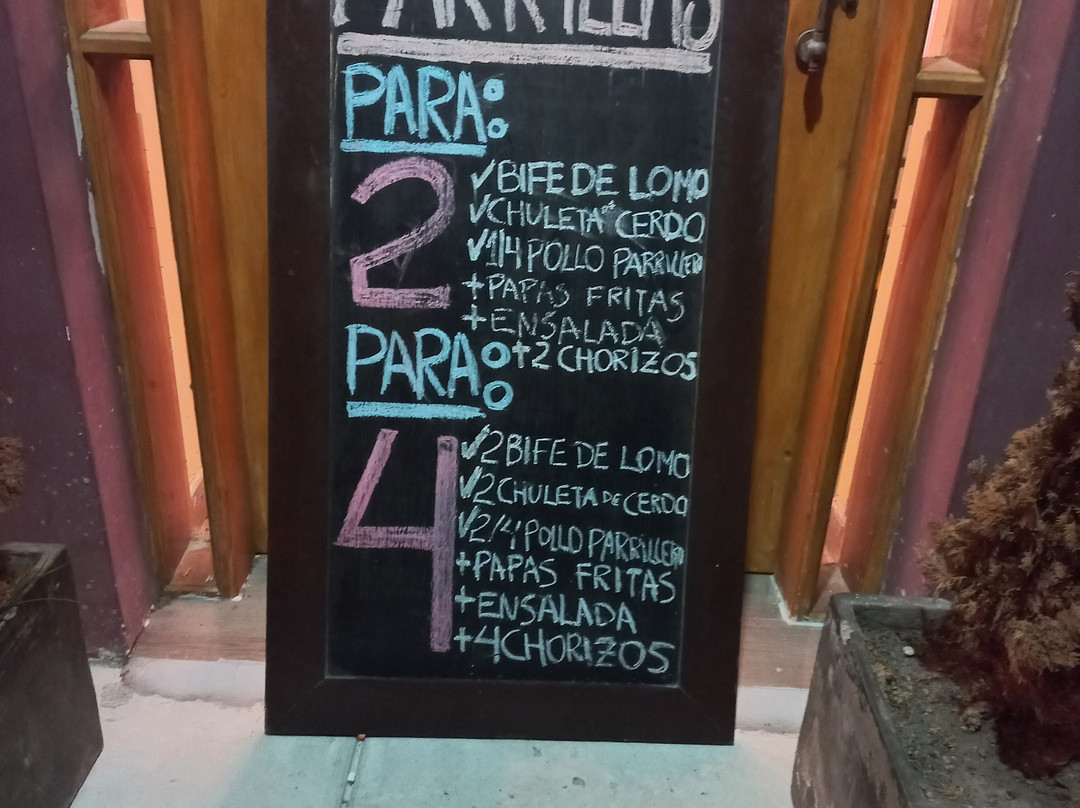 PARRILLAS
PARA:
2
✓BIFE DE LOMO
✓CHULETA DE CERDO
✓1/4 POLLO PARRILLERO
+PAPAS FRITAS
+ENSALADA
+2 CHORIZOS
PARA:
4
✓2 BIFE DE LOMO
✓2 CHULETA DE CERDO
✓2/4 POLLO PARRILLERO
+PAPAS FRITAS
+ENSALADA
+4 CHORIZOS